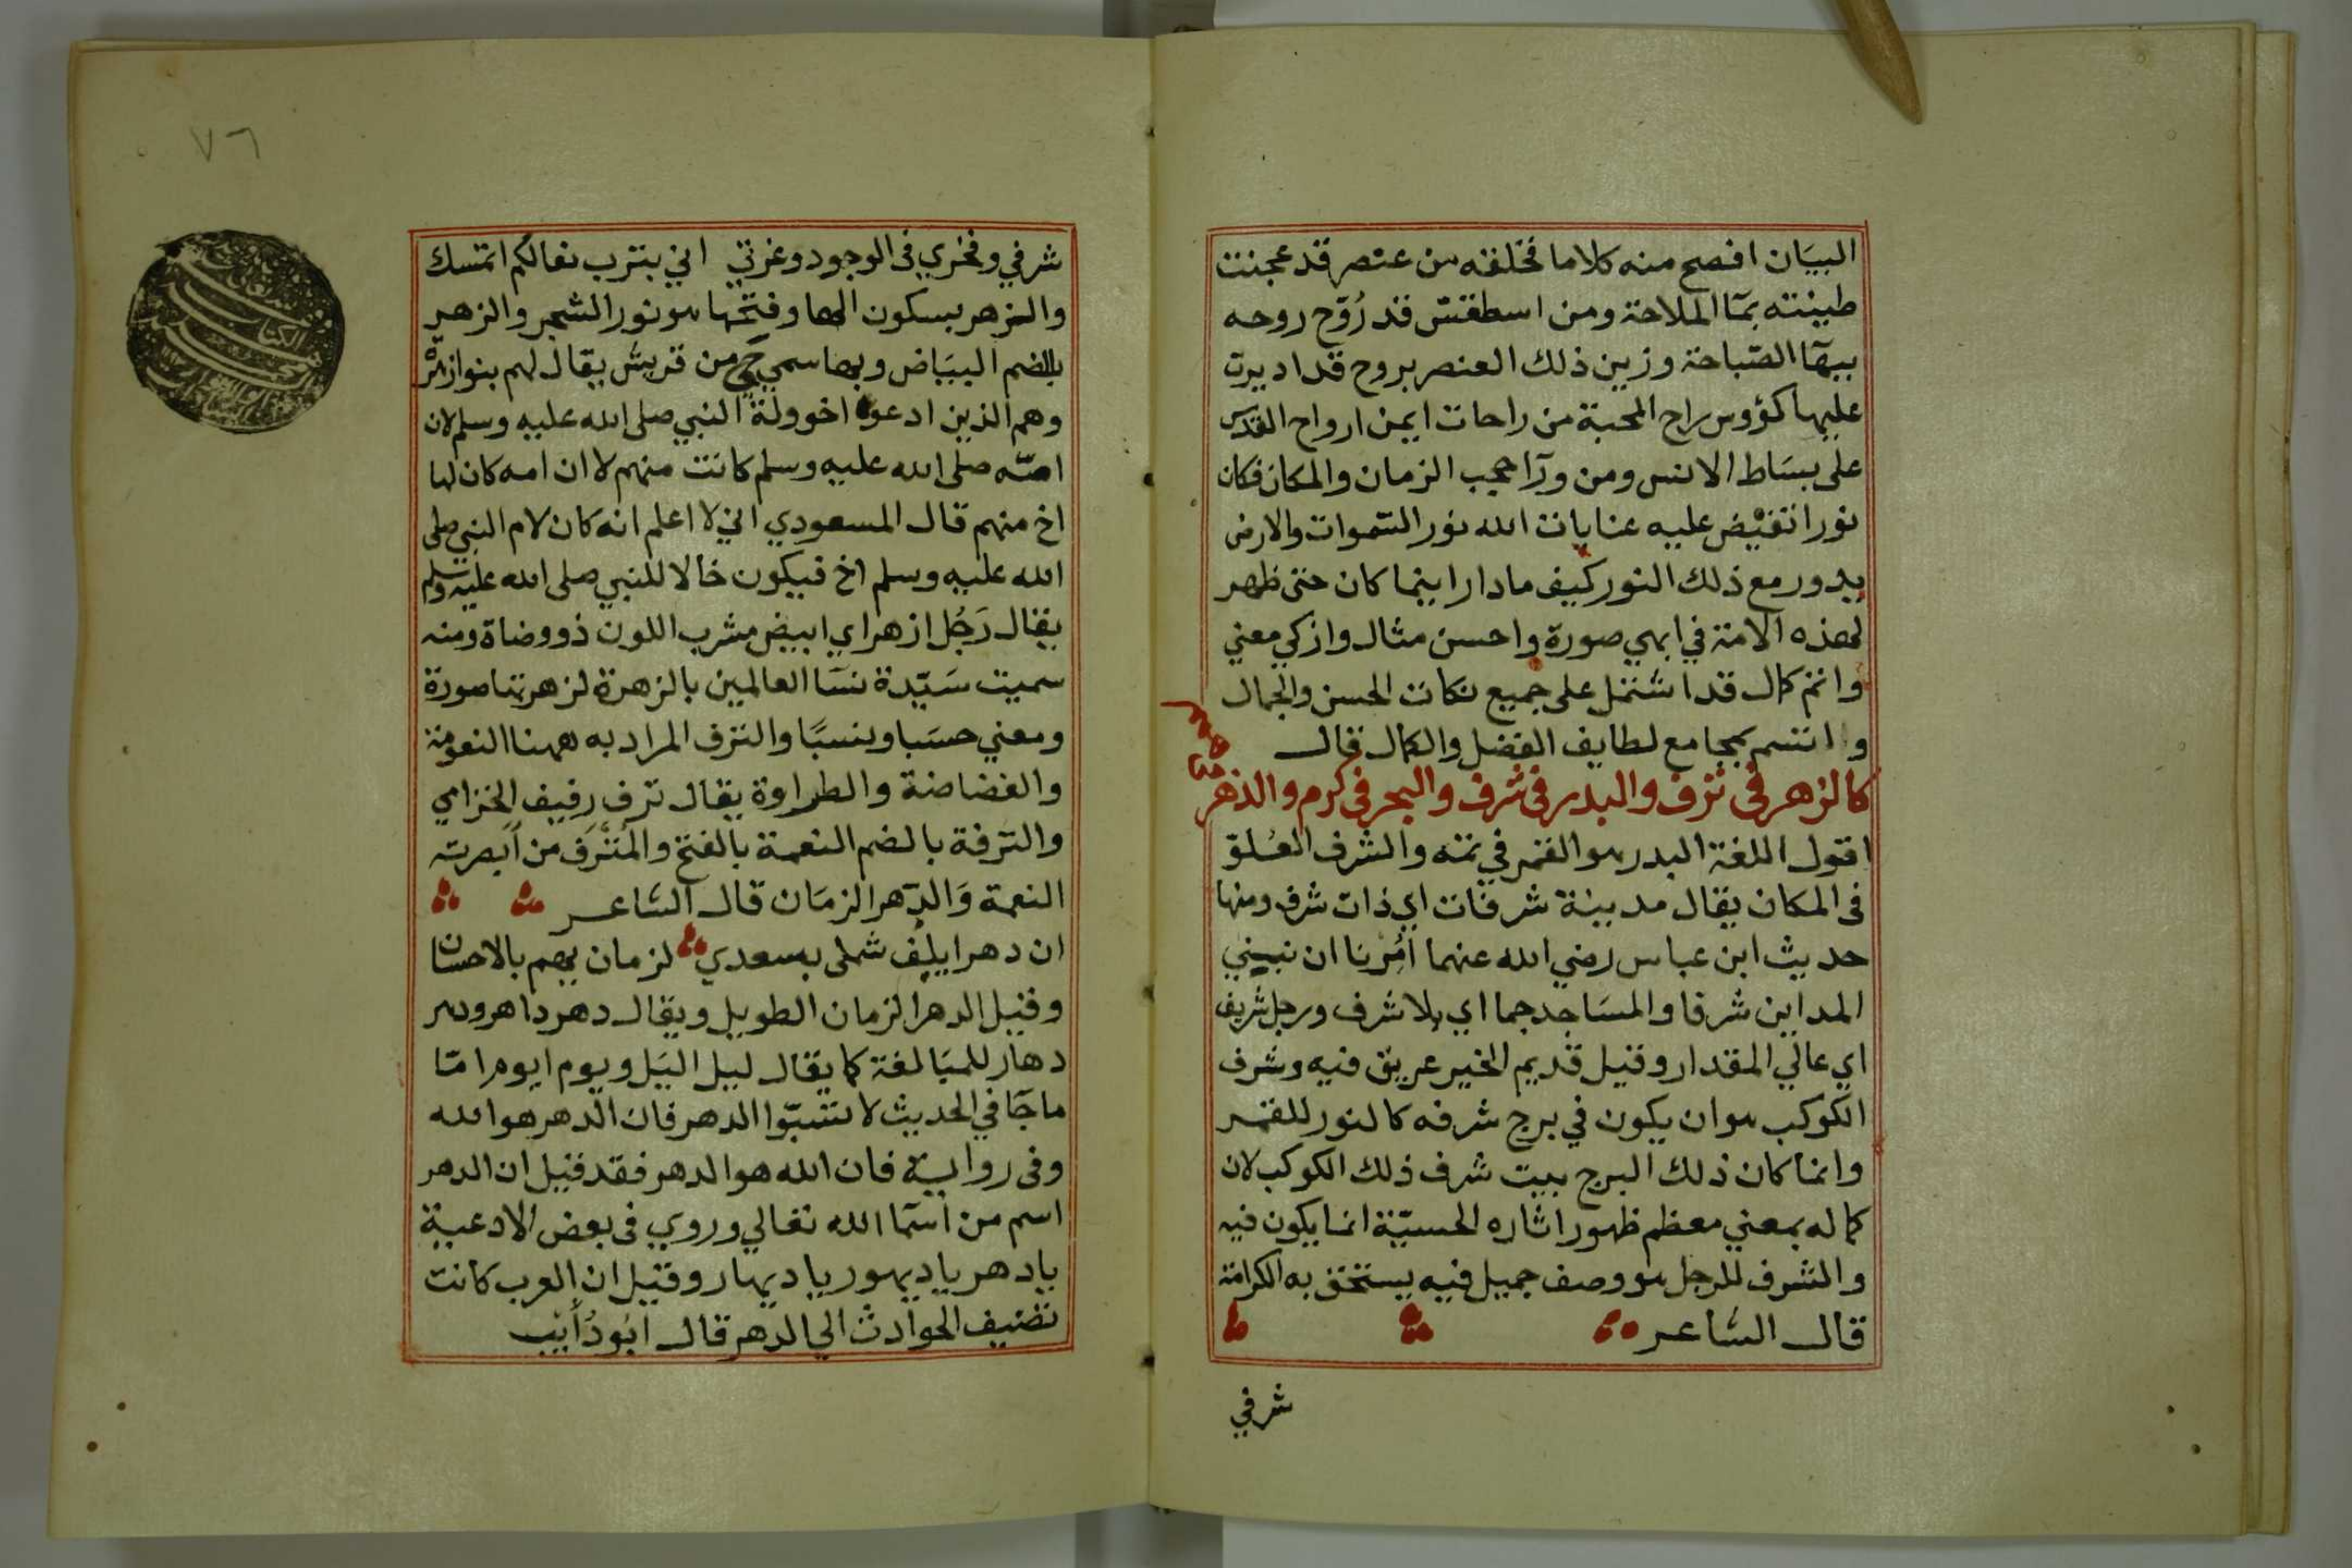 البيان افصح منه كلاما فخلقه من عنصر قد عجنت
طينته بمآ الملاحة ومن اسطقس قد رُوّح روحه
ببهآ الصّباحة وزين ذلك العنصر بروح قد اديرت
عليها كؤوس راح المحبة من راحات ايمن ارواح القدس
على بساط الانس ومن ورآ حجب الزمان والمكان فكان
نورا تفيض عليه عنايات الله نور السّموات والارض
يدور مع ذلك النور كيف ما دار اينما كان حتى ظهر
لهذه الامة في ابهي صورة واحسن مثال وازكي معني
واتم كمال قد اشتمل على جميع نكات الحسن والجمال
واتسم بمجامع لطايف الفضل والكمال قال
كالزهر في ترف والبدر في شرف والبحر في كرم والدهر
في همم
اقول اللغة البدر هو القمر في تمه والشرف العُلوّ
فى المكان يقال مدينة شرفات اي ذات شرف ومنها
حديث ابن عباس رضي الله عنهما اُمِرنا ان نبيني
المداين شرفا والمساجد جما اي بلا شرف ورجل شريف
اي عالي المقدار وقيل قديم الخير عريق فيه وشرف
الكوكب هو ان يكون في برج شرفه كالنور للقمر
وانما كان ذلك البرج بيت شرف ذلك الكوكب لان
كماله بمعني معظم ظهور اثاره الحسيّة انما يكون فيه
والشرف للرجل هو وصف جميل فيه يستحق به الكرامة
قال الشاعر
شرفي
٧٦
شرفي وفخري فى الوجود وغرتي اني بترب نعالكم اتمسك
والزهر بسكون الها وفتحها هو نور الشجر والزهر
بالضم البياض وبها سمي حي من قريش يقال لهم بنوا زهر
وهم الذين ادعوا اخوولة النبي صلى الله عليه وسلم لان
امّه صلى الله عليه وسلم كانت منهم لا ان امه كان لها
اخ منهم قال المسعودي اني لا اعلم انه كان لام النبي صلى
الله عليه وسلم اخ فيكون خالا للنبي صلى الله عليه وسلم
يقال رَجُل ازهر اي ابيض مشرب اللون ذو وضاة ومنه
سميت سَيّدة نسَآ العالمين بالزهرة لزهرتها صورة
ومعني حسَبا ونسبًا والترف المراد به ههنا النعومة
والغضاضة والطراوة يقال ترف رفيف الخزامي
والترفة بالضم النعمة بالفتح والمُتْرَف من ابصرته
النعمة وَالدّهر الزمَان قال الشاعر
ان دهرا يلف شملى بسعدي لزمان يهم بالاحسان
وقيل الدهر الزمان الطويل ويقال دهر داهر ودهر
دهار للمبَالغة كما يقال ليل اليَل ويوم ايوم امّا
ما جآ في الحديث لا تسبّوا الدهر فان الدهر هو الله
وفى رواية فان الله هو الدهر فقد قيل ان الدهر
اسم من اسمآ الله تعالي وروي فى بعض الادعية
يا دهر يا ديهور يا ديهار وقيل ان العرب كانت
تضيف الحوادث الي الدهر قال ابُو ذُاَيْب